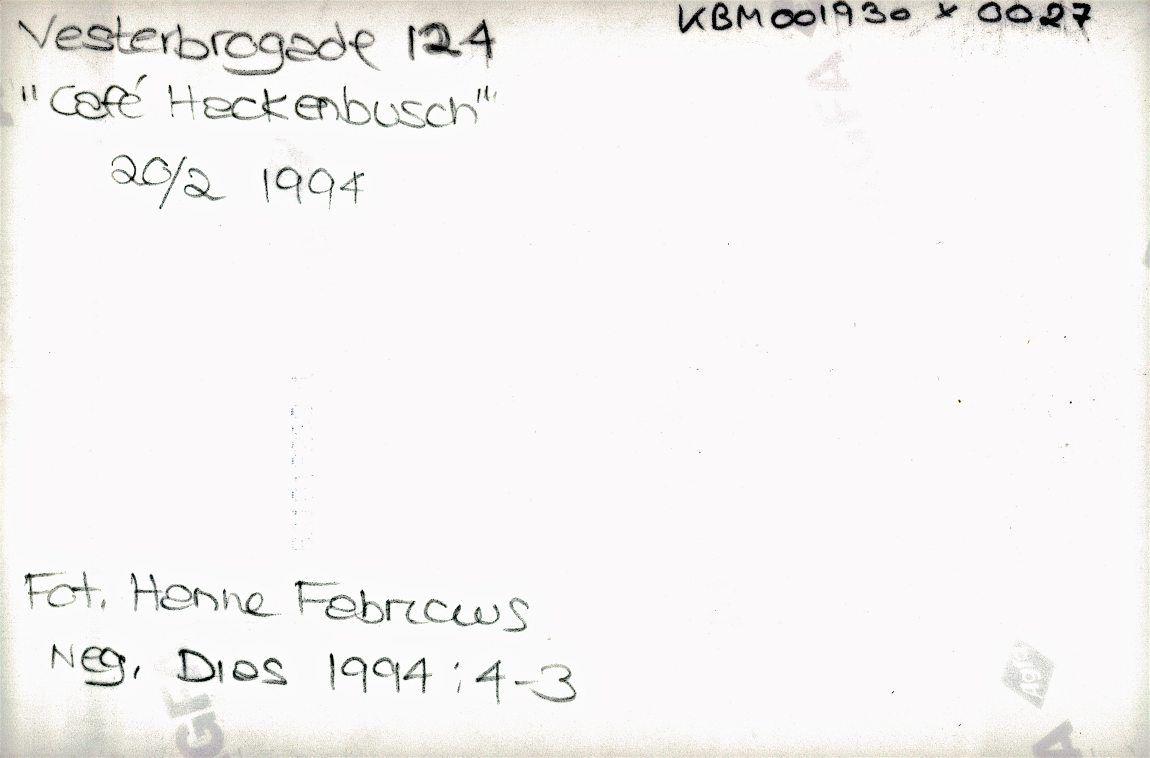 Vesterbrogade 124
KBM001930 x 0027
"Café Hackenbusch"
20/2 1994
Fot. Hanne Fabricius
Neg. Dias 1994 : 4-3
Agfa